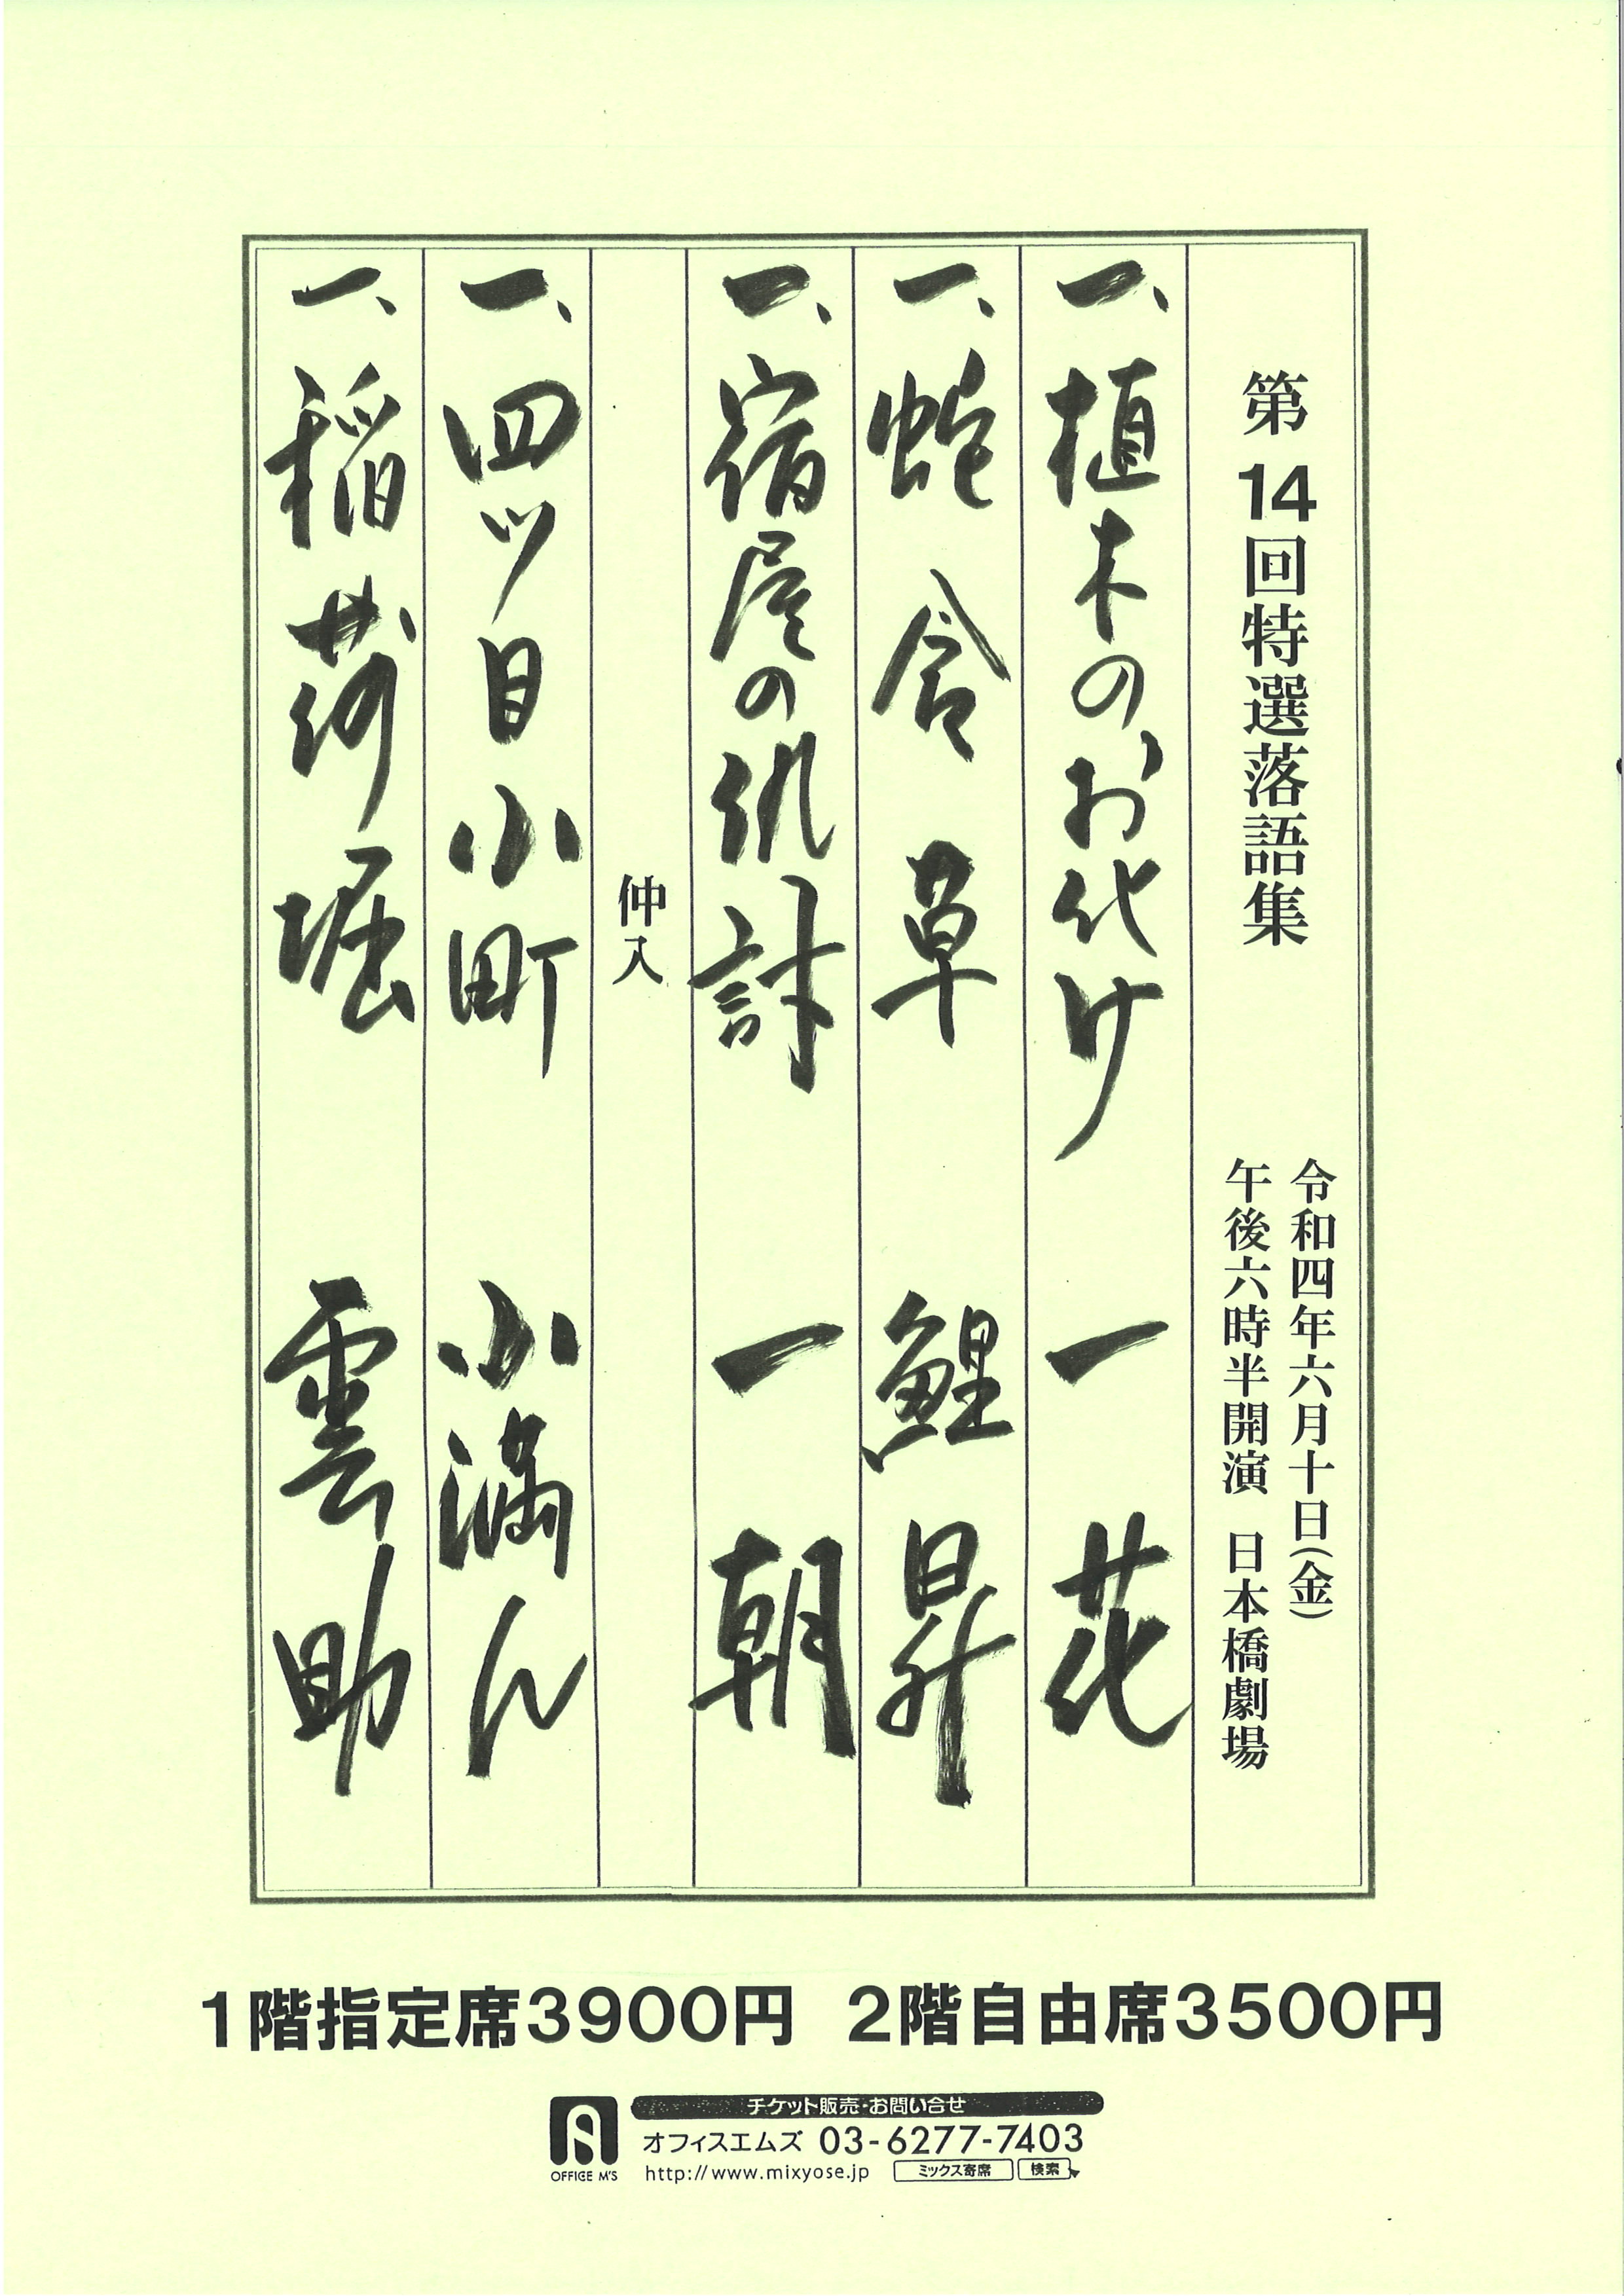 第14回特選落語集
令和四年六月十日(金)
午後六時半開演 日本橋劇場
一、植木のお化け 一花
一、蛇含草 鯉昇
一、宿屋の仇討 一朝
仲入
一、四ツ目小町 小満ん
一、稲荷堀 雲助
1階指定席3900円 2階自由席3500円
チケット販売・お問い合せ
オフィスエムズ 03-6277-7403
OFFICE M'S
http://www.mixyose.jp ミックス寄席 検索